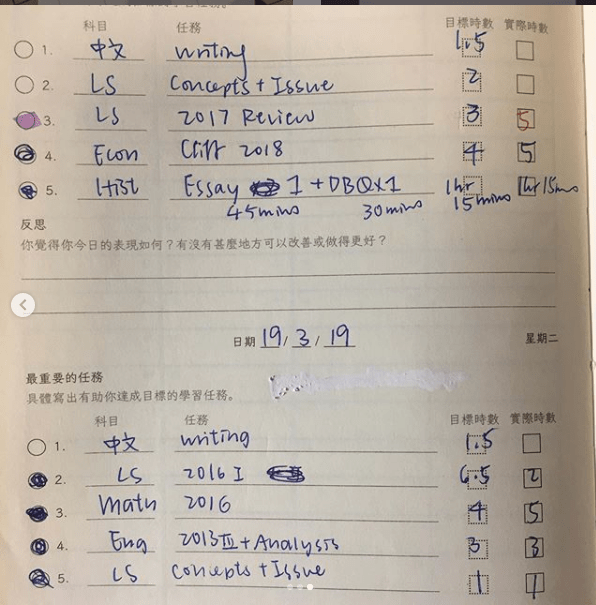 科目 任務 目標時數 實際時數
1. 中文 writing 1.5
2. LS Concepts + Issue 2
3. LS 2017 Review 3 5
4. Econ 2018 4 5
5. Hist Essay 1 + DBQx1 1hr 15mins 1hr 15mins
45mins 30mins
反思
你覺得你今日的表現如何？有沒有甚麼地方可以改善或做得更好？
日期 19 / 3 / 19 星期二
最重要的任務
具體寫出有助你達成目標的學習任務。
科目 任務 目標時數 實際時數
1. 中文 writing 1.5
2. LS 2016 I 6.5 2
3. Math 2016 4 5
4. Eng 2013 III + Analysis 3 3
5. LS concepts + Issue 1 1